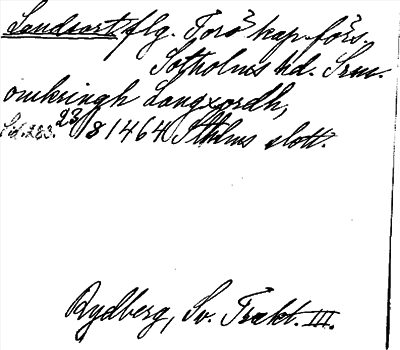 Landsort flg. Torö kapförs.
Sotholms hd. Srm.
omkringh Langxordh,
Sd. 283. 23/8 1464 Sthlms slott.
Rydberg, Sv. Trakt. III.